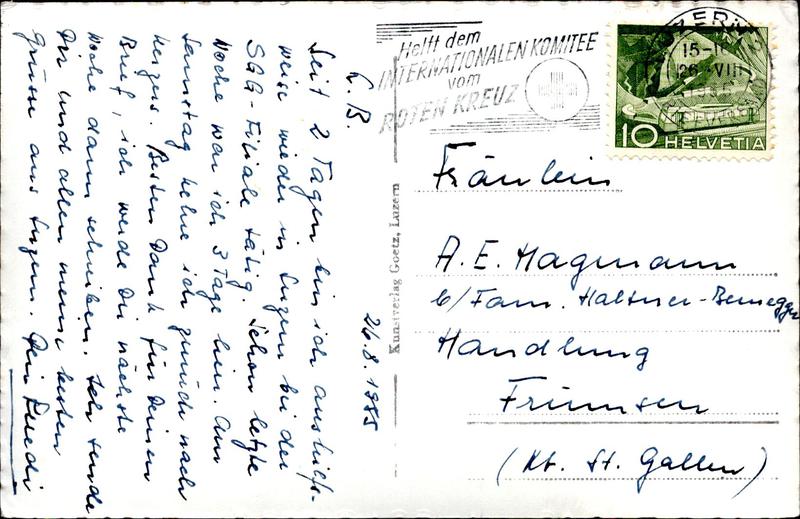 L. B.
Seit 2 Tagen bin ich aushilfs-
weise wieder in Luzern bei der
SGG-Filiale tätig. Schon letzte
Woche war ich 3 Tage hier. Am
Samstag kehre ich zurück nach
Besten Dank für Deinen
Brief, ich werde Dir nächste
Woche dann schreiben. Ich sende
Dir und allen meine besten
Grüsse aus Luzern. Dein Ruedi
26.8.1955
Kunstverlag Goetz, Luzern
Helft dem
INTERNATIONALEN KOMITEE
vom
ROTEN KREUZ
LUZERN
15-
26. VIII
10 HELVETIA
Fräulein
A. E. Hagmann
b/Fam. Haltner-Bernegger
Handlung
Frümsen
(Kt. St. Gallen)